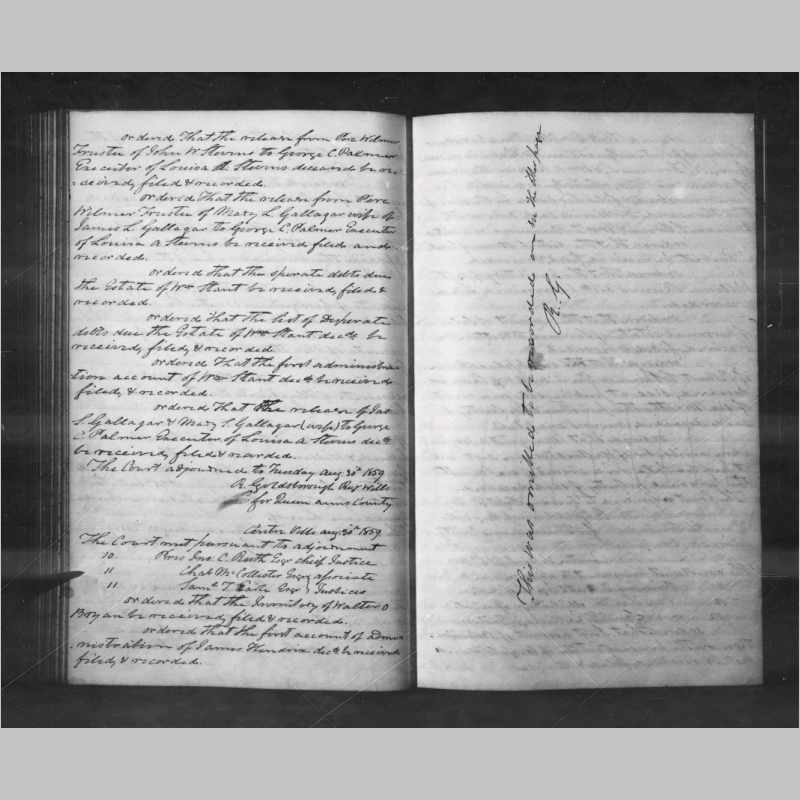 ordered That the release from Pere Wilmer
Trustee of John W Stevens to George C. Palmer
Executor of Louisa A Stevens deceased be re
-ceived, filed & recorded.
ordered That the release from Pere
Wilmer Trustee of Mary L Gallagar wife of
James L Gallagar to George C. Palmer Executor
of Louisa A Stevens be received filed and
recorded.
ordered that the sperate debts due
the Estate of Wm Stant be received, filed &
recorded.
ordered that the list of Desperate
debts due the Estate of Wm Stant decd be
received, filed, & recorded
ordered That the first administra
-tion account of Wm Stant decd be received
filed, & recorded.
ordered That the release of Jas
L Gallagar & Mary L Gallagar (wife) to George
C. Palmer Executor of Louisa A Stevens decd
be received, filed & recorded.
The Court adjourned to Tuesday Aug 30th 1859
R. Goldsborough Reg Wills
for Queen anns County
Centre Ville Aug 30th 1859
The Court met pursuant to adjournment
10 Pres Jno. C. Ruth Esqr chief Justice
11 Chas McCollister Esqr associate
11 Saml T. Esqr Justices
ordered that the Inventory of Walter O
Bryan be received, filed & recorded.
ordered that the first account of Admi
-nistration of James Hendrix decd be received
filed, & recorded.
This was omitted to be recorded on the page
R. G.